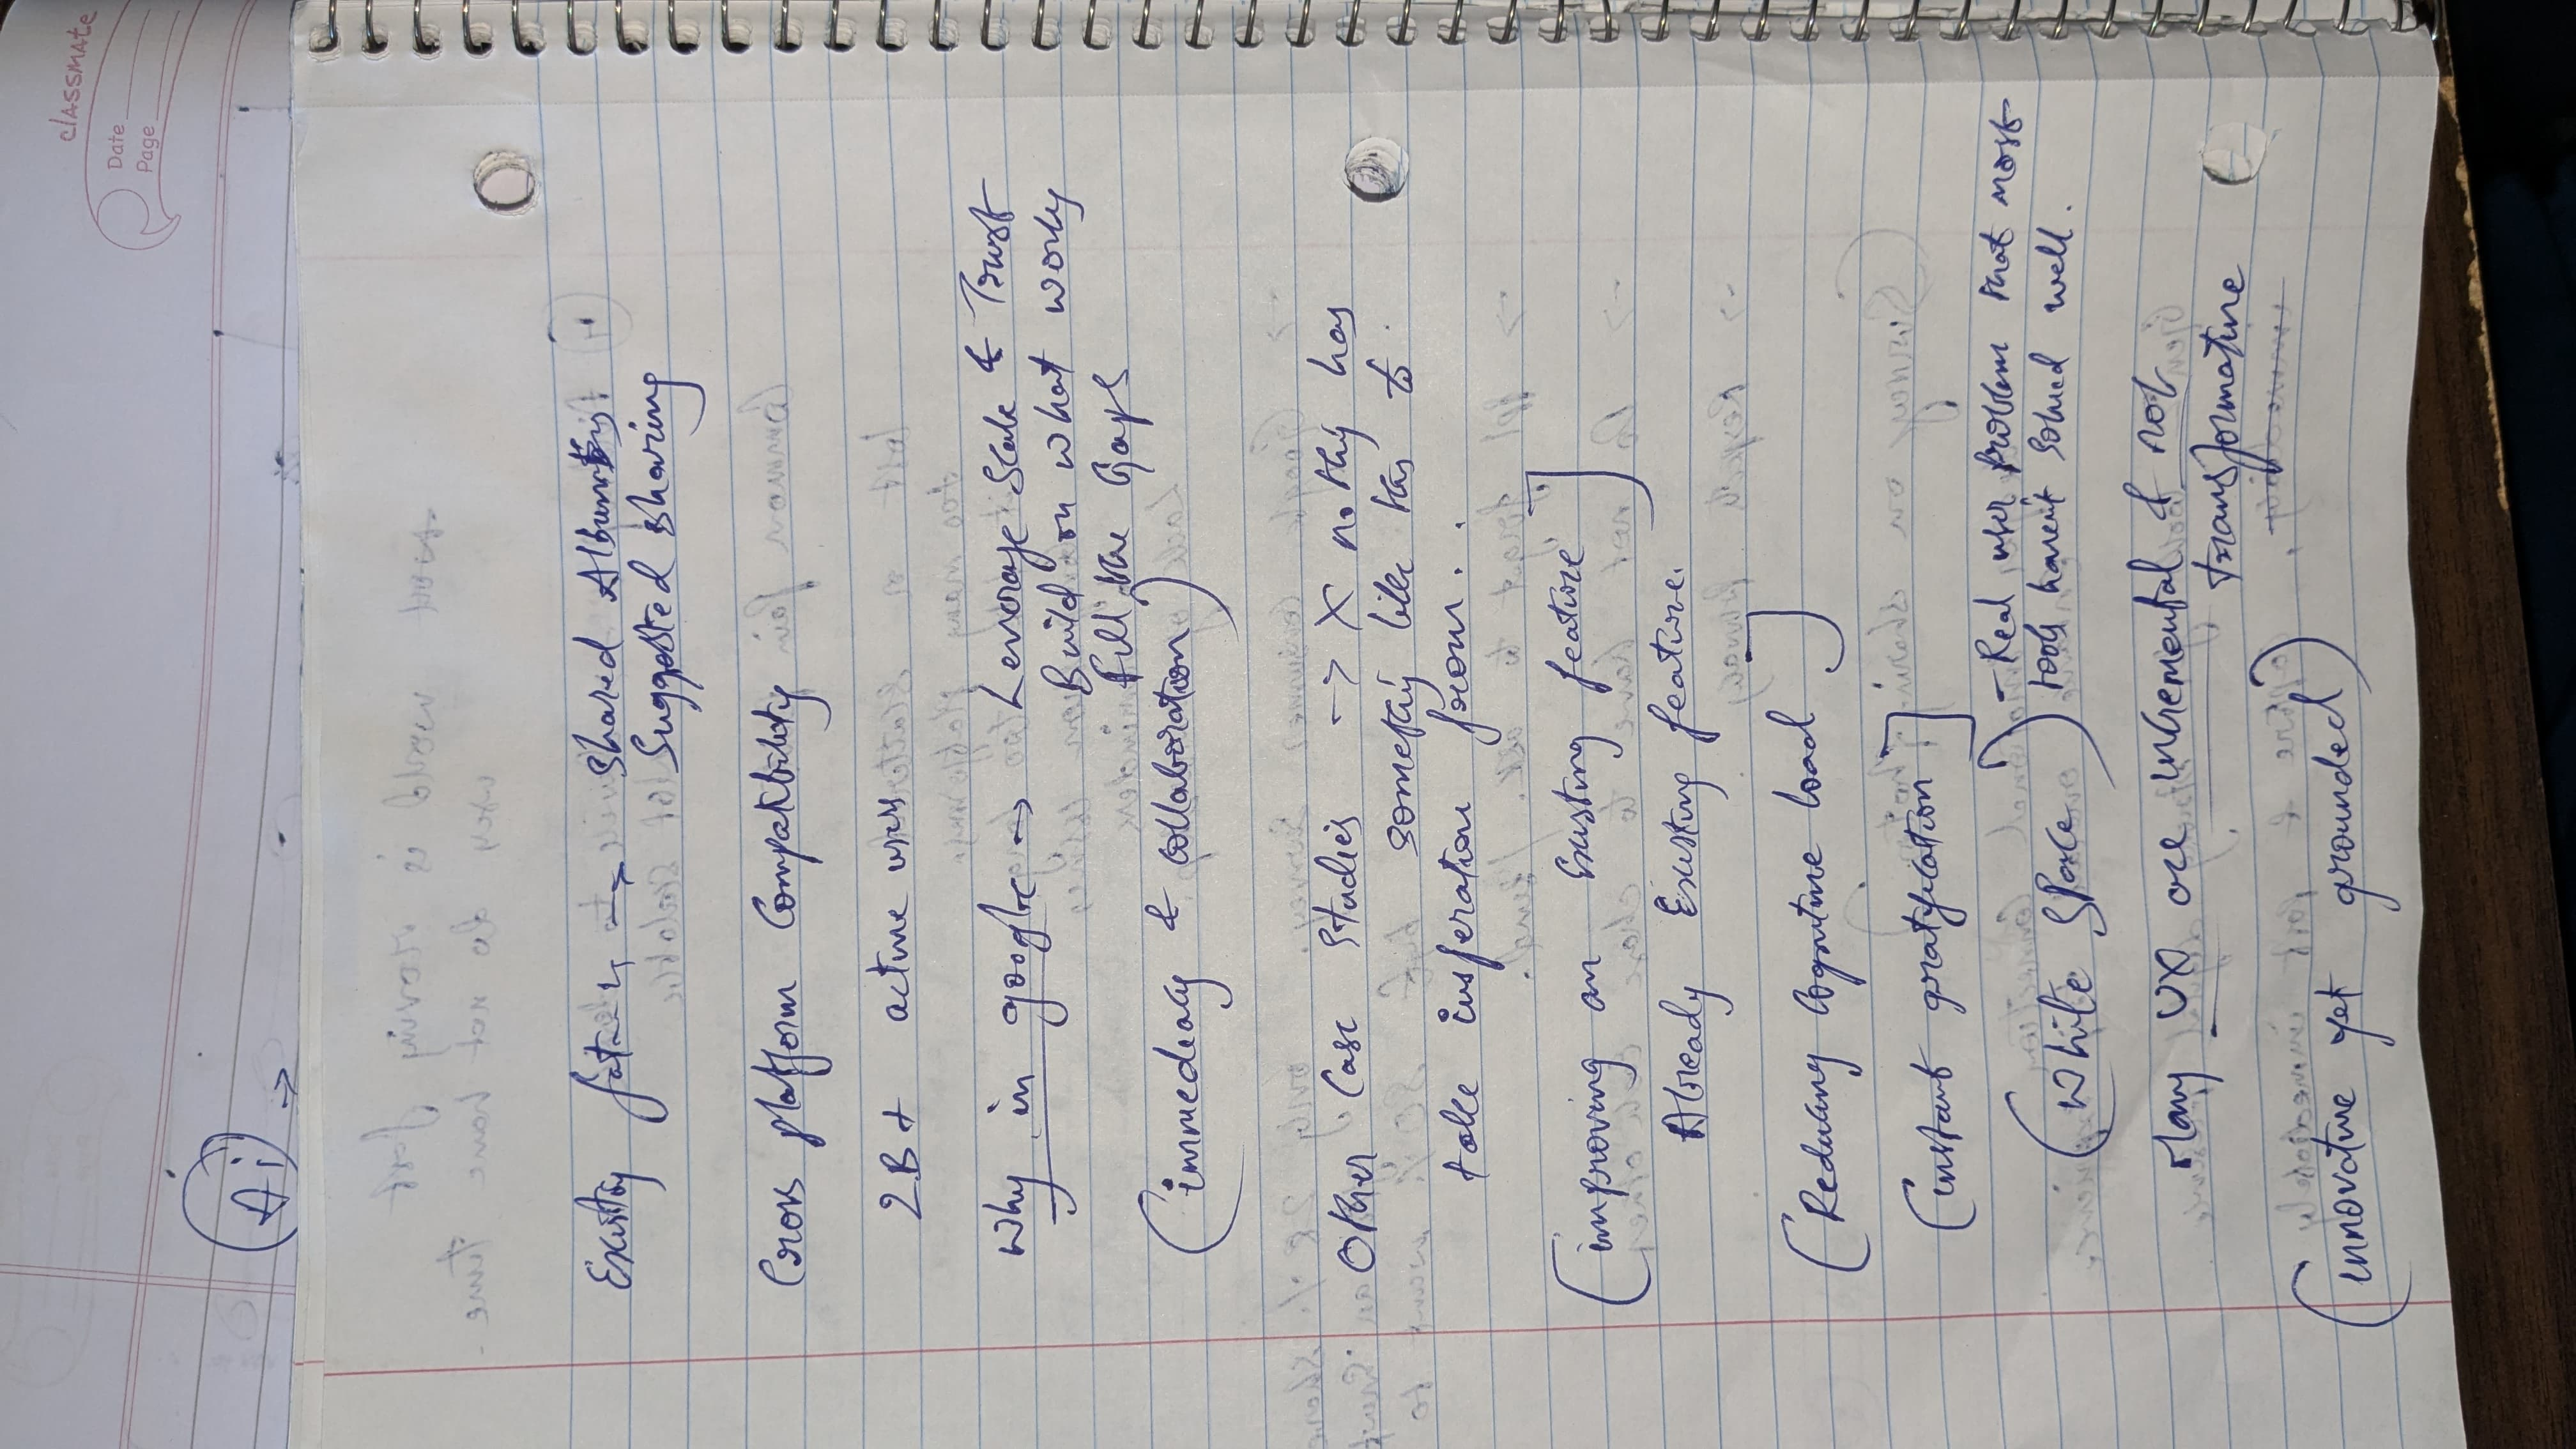 classmate
Date
Page
Ai
Existing → Shared Albums
Suggested Sharing
Cross platform Compatibility
2B+ active users
Why in google → Leverage Scale & Trust
Build on what works
fill the gaps
(immediacy & collaboration)
Other Case Studies → X no they has
something like this to
take insperation from.
[improving an Existing feature]
Already Existing feature.
[Reducing Cognitive load]
[instant gratification]
(White Space) - Real user problem that most
tools havent solved well.
Many UX are incremental & not
transformative
(innovative yet grounded)